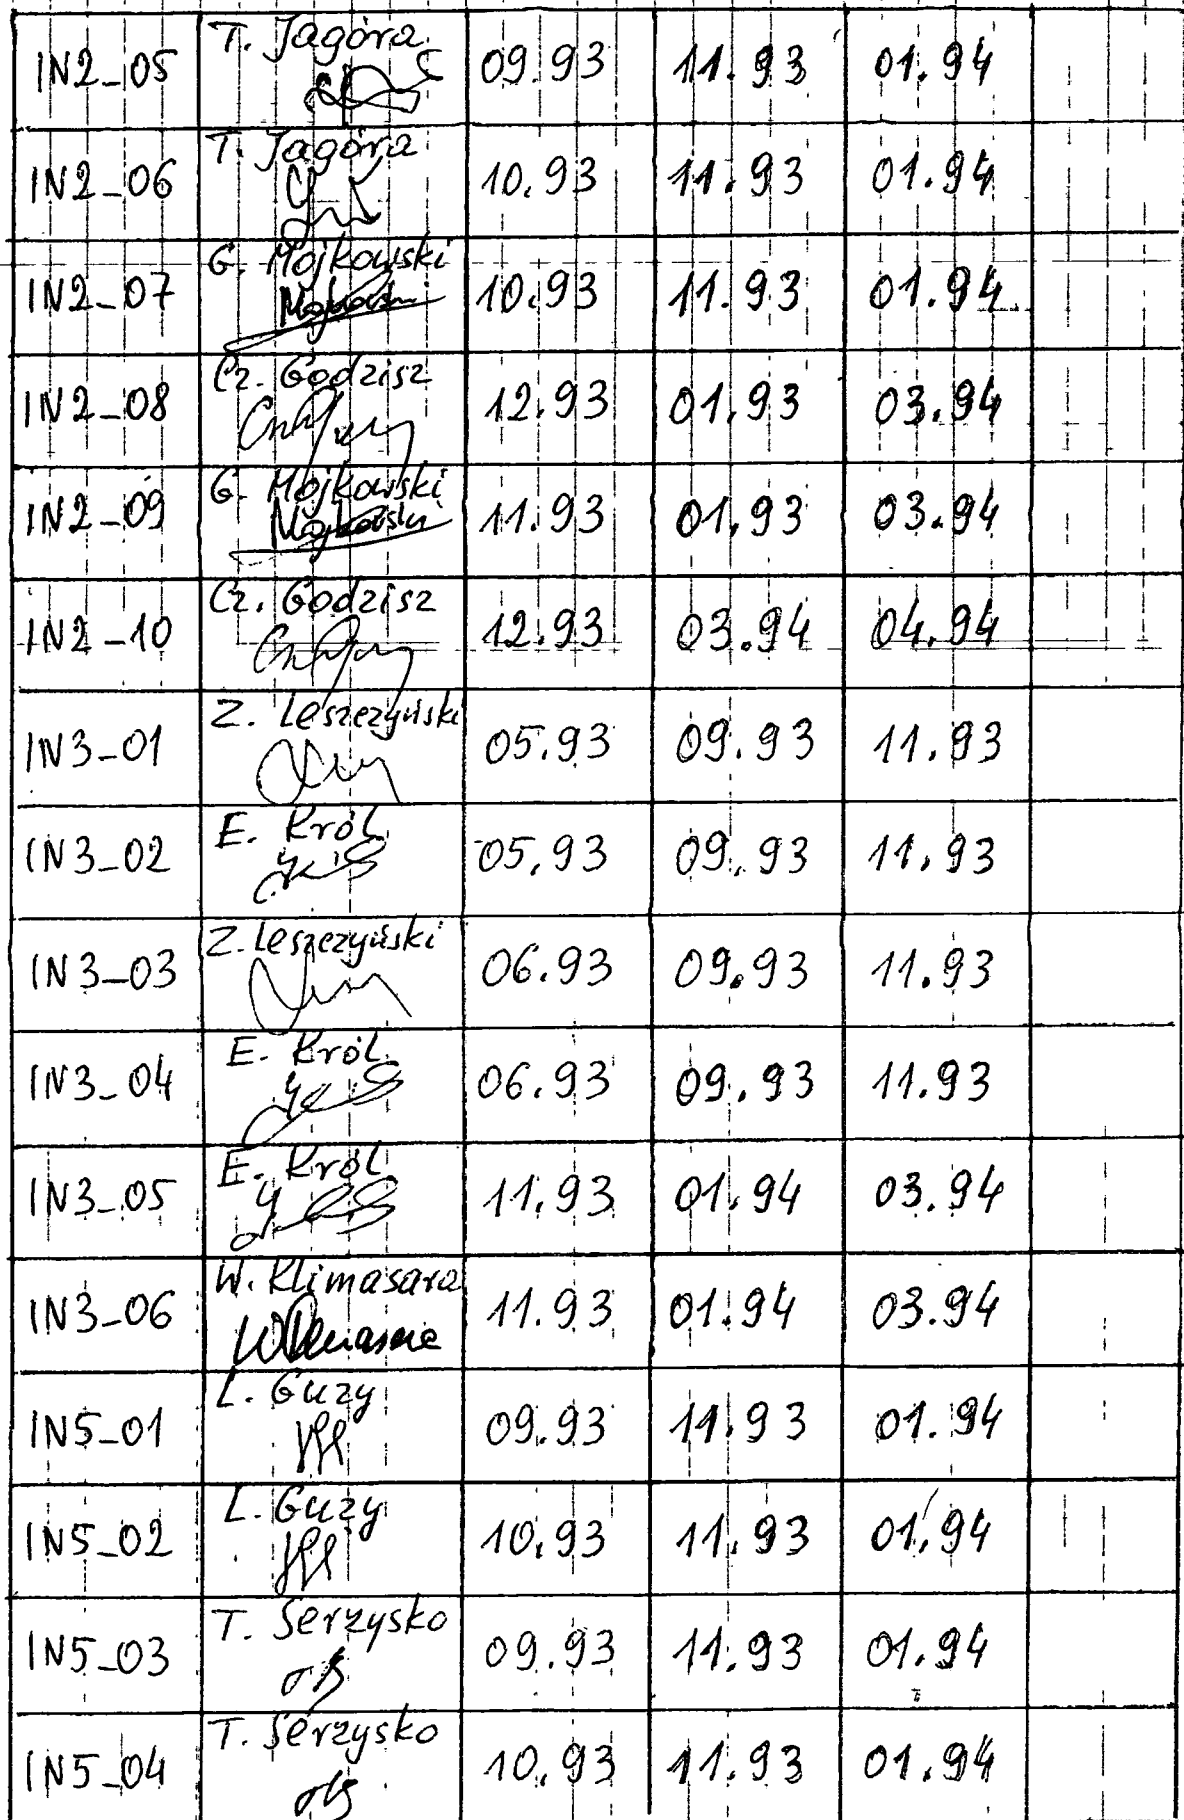 IN2_05 T. Jagóra 09.93 11.93 01.94
IN2_06 T. Jagóra 10.93 11.93 01.94
IN2_07 G. Mojkowski 10.93 11.93 01.94
Mojkowski
IN2_08 Cz. Godzisz 12.93 01.93 03.94
IN2_09 G. Mojkowski 11.93 01.93 03.94
Mojkowski
IN2_10 Cz. Godzisz 12.93 03.94 04.94
IN3_01 Z. Leszczyński 05.93 09.93 11.93
IN3_02 E. Król 05.93 09.93 11.93
IN3_03 Z. Leszczyński 06.93 09.93 11.93
IN3_04 E. Król 06.93 09.93 11.93
IN3_05 E. Król 11.93 01.94 03.94
IN3_06 W. Klimasara 11.93 01.94 03.94
WKlimasara
IN5_01 L. Guzy 09.93 11.93 01.94
IN5_02 L. Guzy 10.93 11.93 01.94
IN5_03 T. Serzysko 09.93 11.93 01.94
IN5_04 T. Serzysko 10.93 11.93 01.94